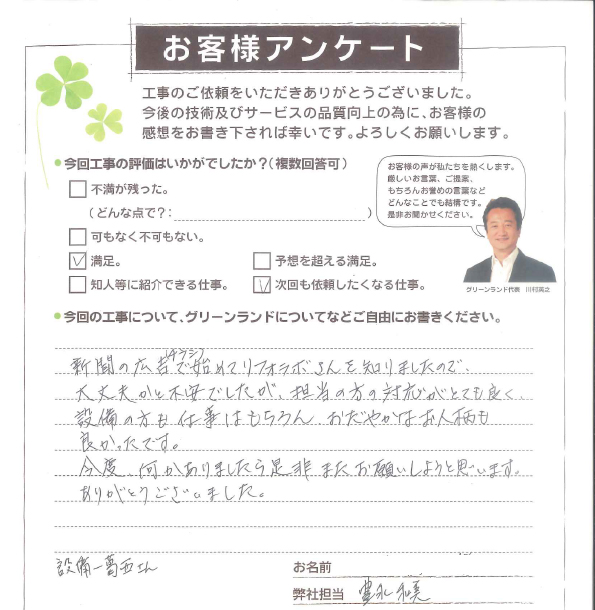 お客様アンケート
工事のご依頼をいただきありがとうございました。
今後の技術及びサービスの品質向上の為に、お客様の
感想をお書き下されば幸いです。よろしくお願いします。
今回工事の評価はいかがでしたか?(複数回答可)
不満が残った。
(どんな点で?: )
可もなく不可もない。
満足。
予想を超える満足。
知人等に紹介できる仕事。
次回も依頼したくなる仕事。
お客様の声が私たちを熱くします。
厳しいお言葉、ご提案、
もちろんお誉めの言葉など
どんなことでも結構です。
是非お聞かせください。
グリーンランド代表 川村高之
今回の工事について、グリーンランドについてなどご自由にお書きください。
(チラシ)
新聞の広告で始めてリフォラボさんを知りましたので、
大丈夫かと不安でしたが、担当の方の対応がとても良く、
設備の方も仕事はもちろん、おだやかなお人柄も
良かったです。
今度、何かありましたら是非またお願いしようと思います。
ありがとうございました。
設備-葛西さん
お名前
弊社担当 豊永 和美